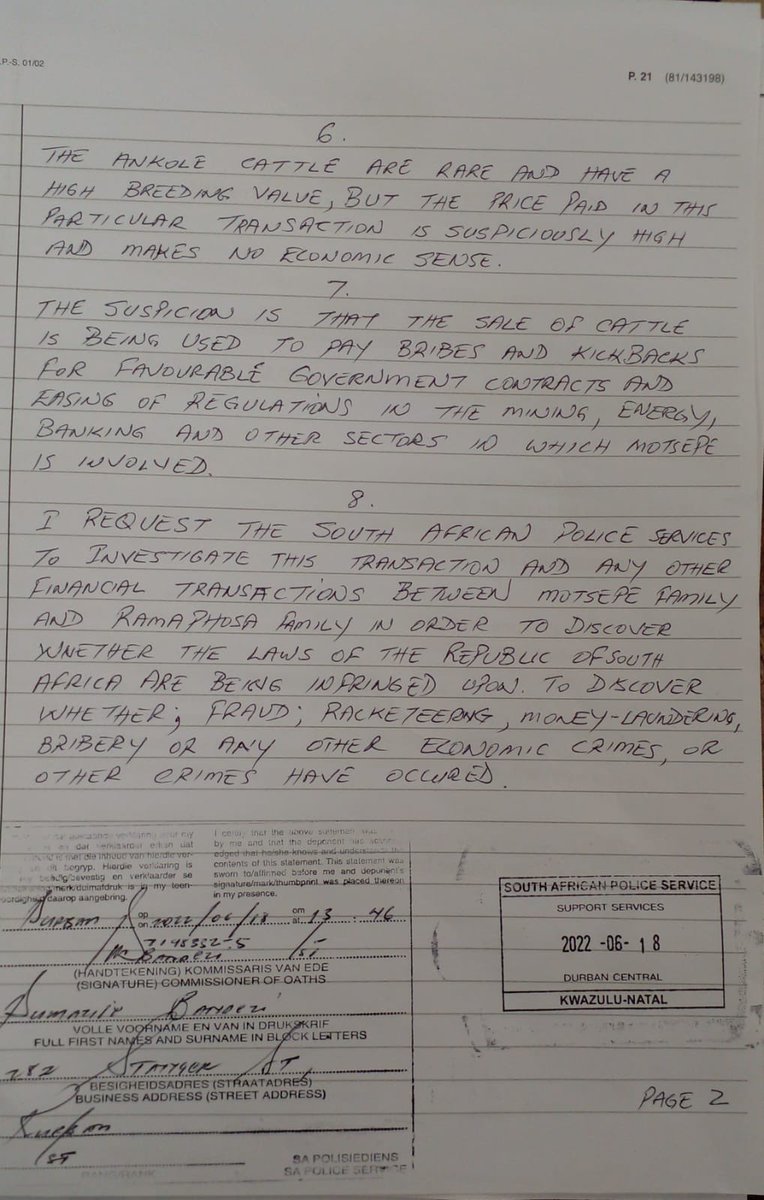 .P.-S. 01/02
P. 21 (81/143198)
6.
THE ANKOLE CATTLE ARE RARE AND HAVE A
HIGH BREEDING VALUE, BUT THE PRICE PAID IN THIS
PARTICULAR TRANSACTION IS SUSPICIOUSLY HIGH
AND MAKES NO ECONOMIC SENSE.
7.
THE SUSPICION IS THAT THE SALE OF CATTLE
IS BEING USED TO PAY BRIBES AND KICKBACKS
FOR FAVOURABLE GOVERNMENT CONTRACTS AND
EASING OF REGULATIONS IN THE MINING, ENERGY,
BANKING AND OTHER SECTORS IN WHICH MOTSEPE
IS INVOLVED.
8.
I REQUEST THE SOUTH AFRICAN POLICE SERVICES
TO INVESTIGATE THIS TRANSACTION AND ANY OTHER
FINANCIAL TRANSACTIONS BETWEEN MOTSEPE FAMILY
AND RAMAPHOSA FAMILY IN ORDER TO DISCOVER
WHETHER THE LAWS OF THE REPUBLIC OF SOUTH
AFRICA ARE BEING INFRINGED UPON. TO DISCOVER
WHETHER; FRAUD; RACKETEERNG, MONEY-LAUNDERING,
BRIBERY OR ANY OTHER ECONOMIC CRIMES, OR
OTHER CRIMES HAVE OCCURED.
verklaring deur my
en dat verklaarder erken dat
is met die inhoud van hierdie ver-
begryp. Hierdie verklaring
en verklaarder se
duimafdruk is in my teen-
daarop aangebring.
I certify that the above statement was
by me and that the deponent has
edged that he/she knows and understands
contents of this statement. This statement was
sworn to/affirmed before me and deponent's
signature/mark/thumbprint was placed thereon
in my presence.
Durban op on 2022/06/18 om at 13:46
(HANDTEKENING) KOMMISSARIS VAN EDE
(SIGNATURE) COMMISSIONER OF OATHS
VOLLE VOORNAME EN VAN IN DRUKSKRIF
FULL FIRST NAMES AND SURNAME IN BLOCK LETTERS
282 Stanger St
BESIGHEIDSADRES (STRAATADRES)
BUSINESS ADDRESS (STREET ADDRESS)
Durban
RANG/RANK
SA POLISIEDIENS
SA POLICE SERVICE
SOUTH AFRICAN POLICE SERVICE
SUPPORT SERVICES
2022 -06- 18
DURBAN CENTRAL
KWAZULU-NATAL
PAGE 2